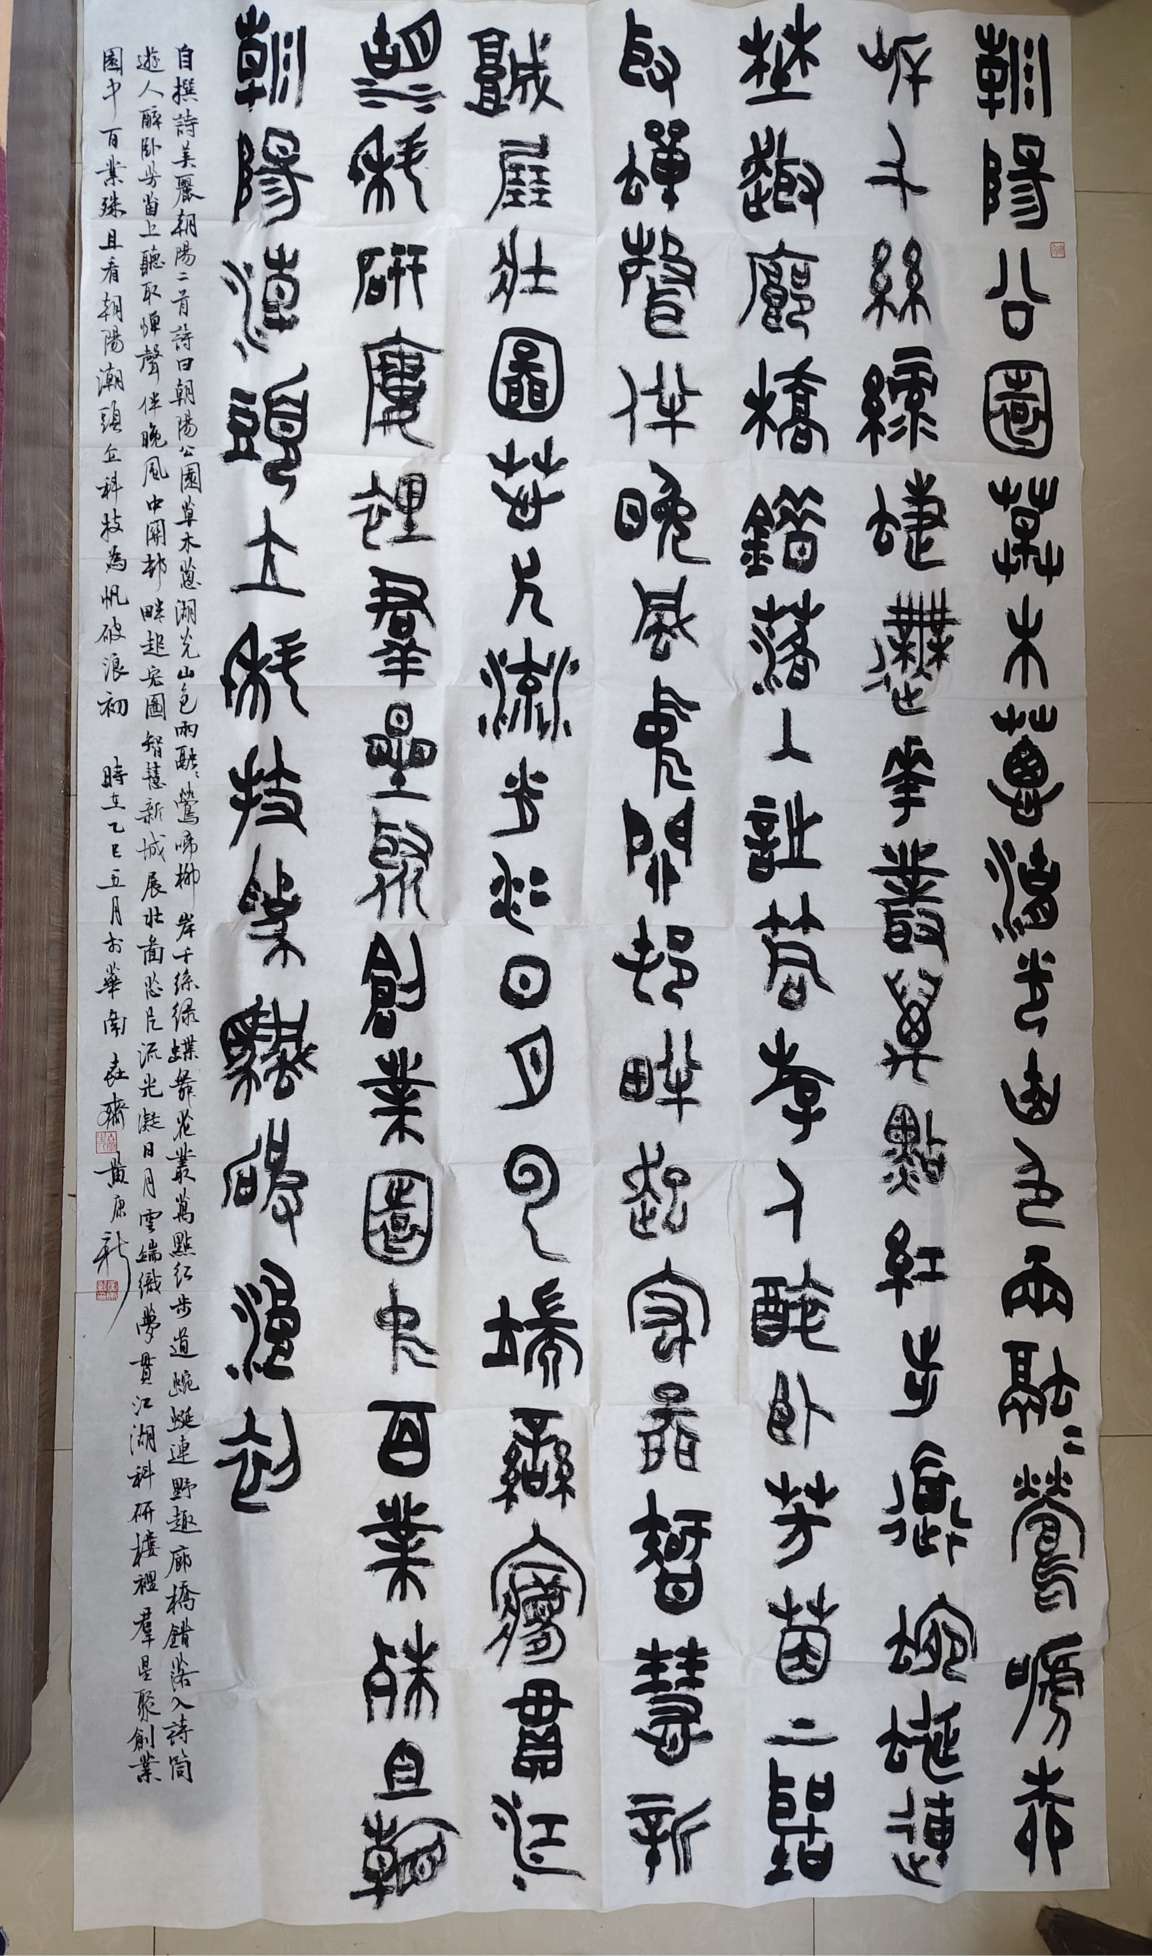 朝陽公園草木蔥湖光山色兩融融鶯啼柳
岸千絲綠蝶舞花叢萬點紅步道蜿蜒連
野趣廊橋錯落入詩筒遊人醉臥芳茵上聽
取蟬聲伴晚風中關村畔起宏圖智慧新
城展壯圖芯片流光凝日月雲端織夢貫江
湖科研樓裡群星聚創業園中百業殊且看
朝陽潮頭立科技為帆破浪初
自撰詩美麗朝陽二首詩曰朝陽公園草木蔥湖光山色兩融融鶯啼柳岸千絲綠蝶舞花叢萬點紅步道蜿蜒連野趣廊橋錯落入詩筒
遊人醉臥芳茵上聽取蟬聲伴晚風中關村畔起宏圖智慧新城展壯圖芯片流光凝日月雲端織夢貫江湖科研樓裡羣星聚創業
園中百業殊且看朝陽潮頭立科技為帆破浪初 時在乙巳五月於華南 齋黃康